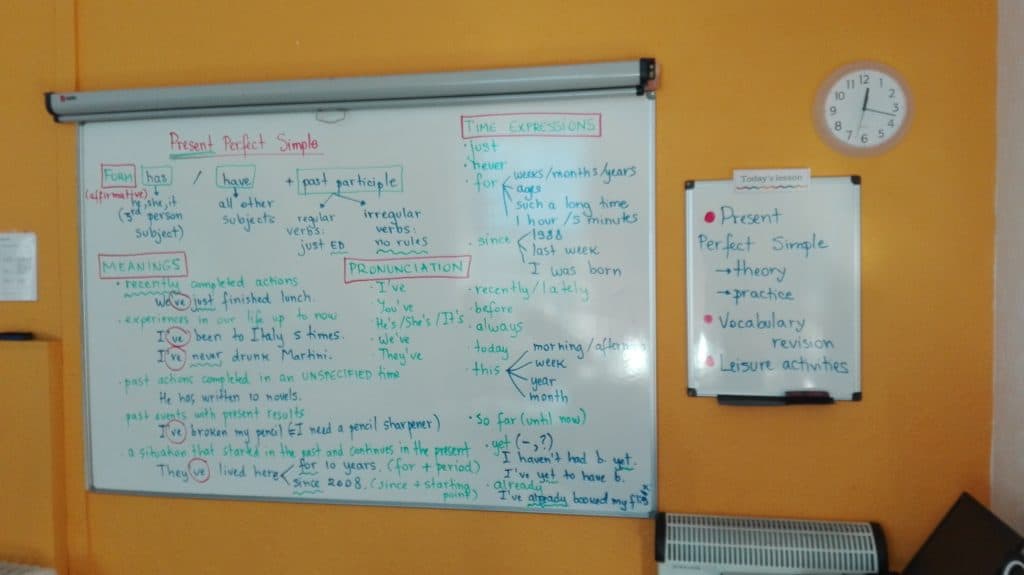 Present Perfect Simple
FORM has / have + past participle
(affirmative)
he, she, it
(3rd person
subject)
all other
subjects
regular
verbs:
just ED
irregular
verbs:
no rules
MEANINGS
• recently completed actions
We've just finished lunch.
• experiences in our life up to now
I've been to Italy 5 times.
I've never drunk Martini.
• past actions completed in an UNSPECIFIED time
He has written 10 novels.
past events with present results
I've broken my pencil (I need a pencil sharpener)
a situation that started in the past and continues in the present
They've lived here
for 10 years. (for + period)
since 2008. (since + starting
point)
PRONUNCIATION
• I've
• You've
• He's/She's/It's
• We've
• They've
TIME EXPRESSIONS
• just
• never
• for
weeks/months/years
ages
such a long time
1 hour/5 minutes
• since
1988
last week
I was born
• recently/lately
• before
• always
• today
• this
morning/afternoon
week
year
month
• So far (until now)
• yet (-,?)
I haven't had b. yet.
I've yet to have b.
• already
I've already booked my
12 1 2 3 4 5 6 7 8 9 10 11
Today's lesson
• Present
Perfect Simple
→ theory
→ practice
• Vocabulary
revision
• Leisure activities